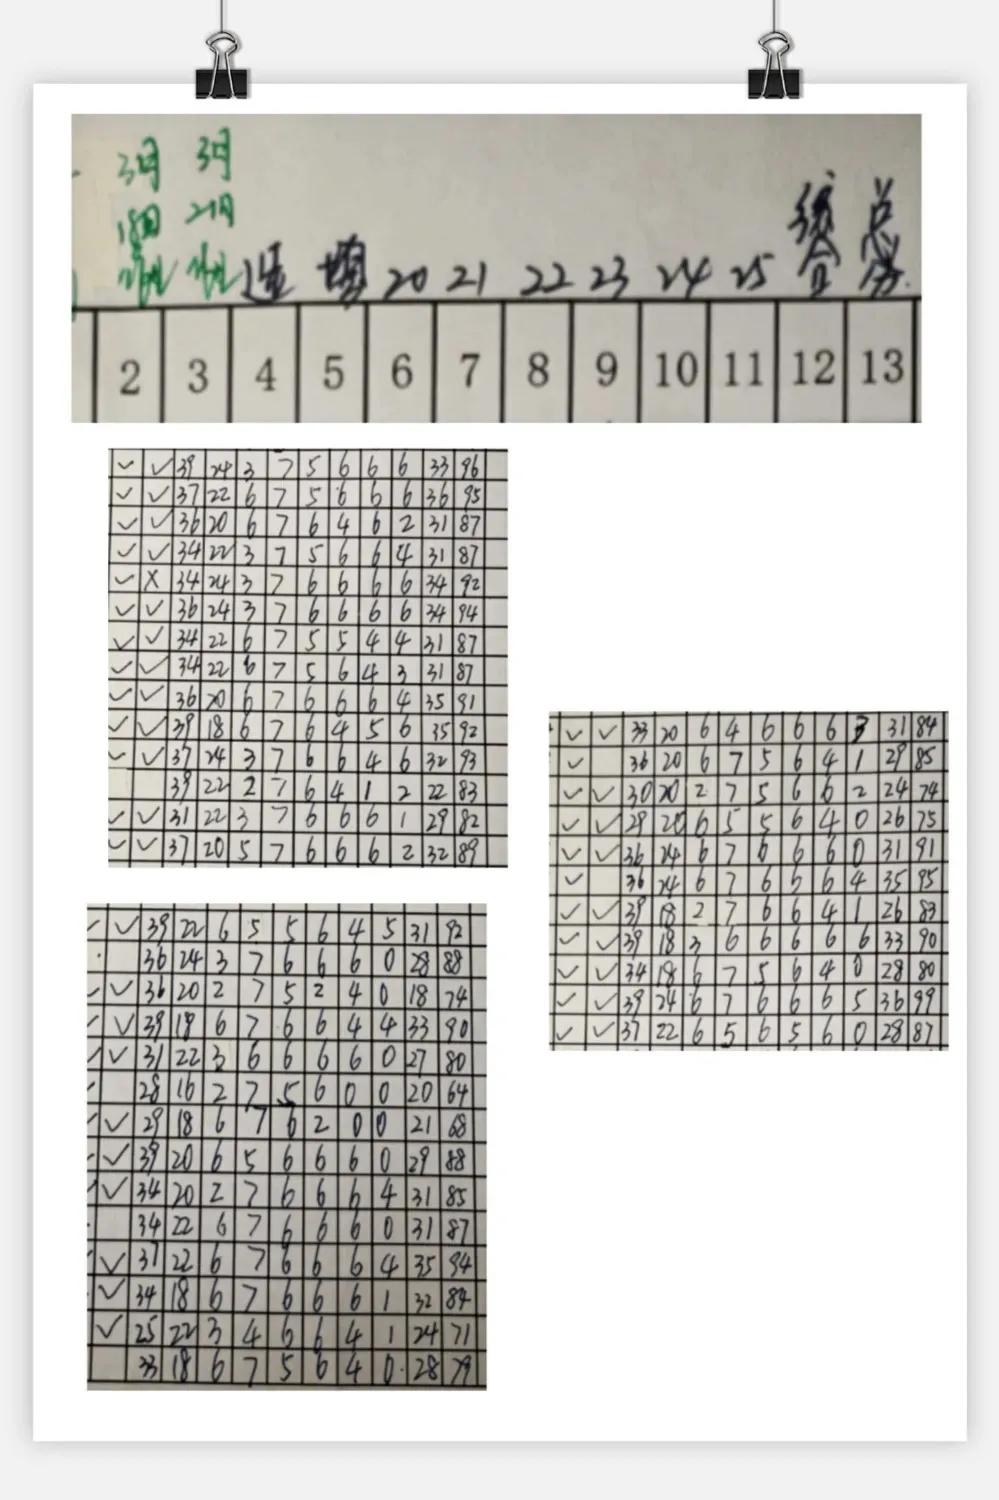 3月 3月
18日 21日
选 填 20 21 22 23 24 25 综合 总分
2 3 4 5 6 7 8 9 10 11 12 13
✓ ✓ 39 24 3 7 5 6 6 6 33 96
✓ ✓ 37 22 6 7 5 6 6 6 36 95
✓ ✓ 36 20 6 7 6 4 6 2 31 87
✓ ✓ 34 22 3 7 5 6 6 4 31 87
✓ X 34 24 3 7 6 6 6 6 34 92
✓ ✓ 36 24 3 7 6 6 6 6 34 94
✓ ✓ 34 22 6 7 5 5 4 4 31 87
✓ ✓ 34 22 6 7 5 6 4 3 31 87
✓ ✓ 36 20 6 7 6 6 6 4 35 91
✓ ✓ 39 18 6 7 6 4 5 6 35 92
✓ ✓ 37 24 3 7 6 6 4 6 32 93
39 22 2 7 6 4 1 2 22 83
✓ ✓ 31 22 3 7 6 6 6 1 29 82
✓ ✓ 37 20 5 7 6 6 6 2 32 89
✓ ✓ 33 20 6 4 6 6 6 3 31 84
✓ 36 20 6 7 5 6 4 1 29 85
✓ ✓ 30 20 2 7 5 6 6 2 24 74
✓ ✓ 29 20 6 5 5 6 4 0 26 75
✓ ✓ 36 24 6 7 6 6 6 0 31 91
✓ 36 24 6 7 6 6 6 4 35 95
✓ ✓ 39 18 2 7 6 6 4 1 26 83
✓ ✓ 39 18 3 6 6 6 6 6 33 90
✓ ✓ 34 18 6 7 5 6 4 0 28 80
✓ ✓ 39 24 6 7 6 6 6 5 36 99
✓ ✓ 37 22 6 5 6 5 6 0 28 87
✓ ✓ 39 22 6 5 5 6 4 5 31 92
36 24 3 7 6 6 6 0 28 88
✓ ✓ 36 20 2 7 5 2 4 0 18 74
✓ ✓ 39 18 6 7 6 6 4 4 33 90
✓ ✓ 31 22 3 6 6 6 6 0 27 80
✓ 28 16 2 7 5 6 0 0 20 64
✓ ✓ 29 18 6 7 6 2 0 0 21 68
✓ ✓ 39 20 6 5 6 6 6 0 29 88
✓ ✓ 34 20 2 7 6 6 6 4 31 85
34 22 6 7 6 6 6 0 31 87
✓ ✓ 37 22 6 7 6 6 6 4 35 94
✓ 34 18 6 7 6 6 6 1 32 84
✓ 25 22 3 4 6 6 4 1 24 71
33 18 6 7 5 6 4 0 28 79